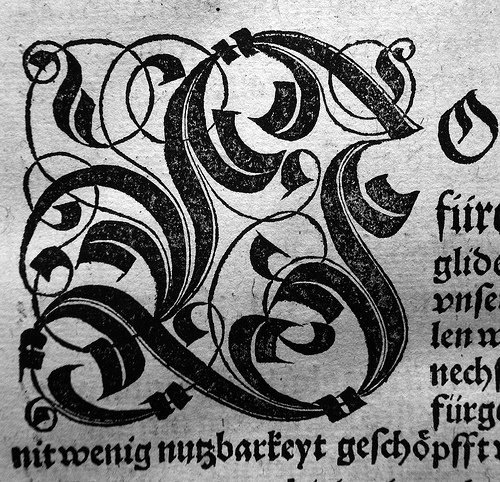 O
für
glide
vnſe
len w
nechſ
fürg
nit wenig nutzbarkeyt geſchöpfft v